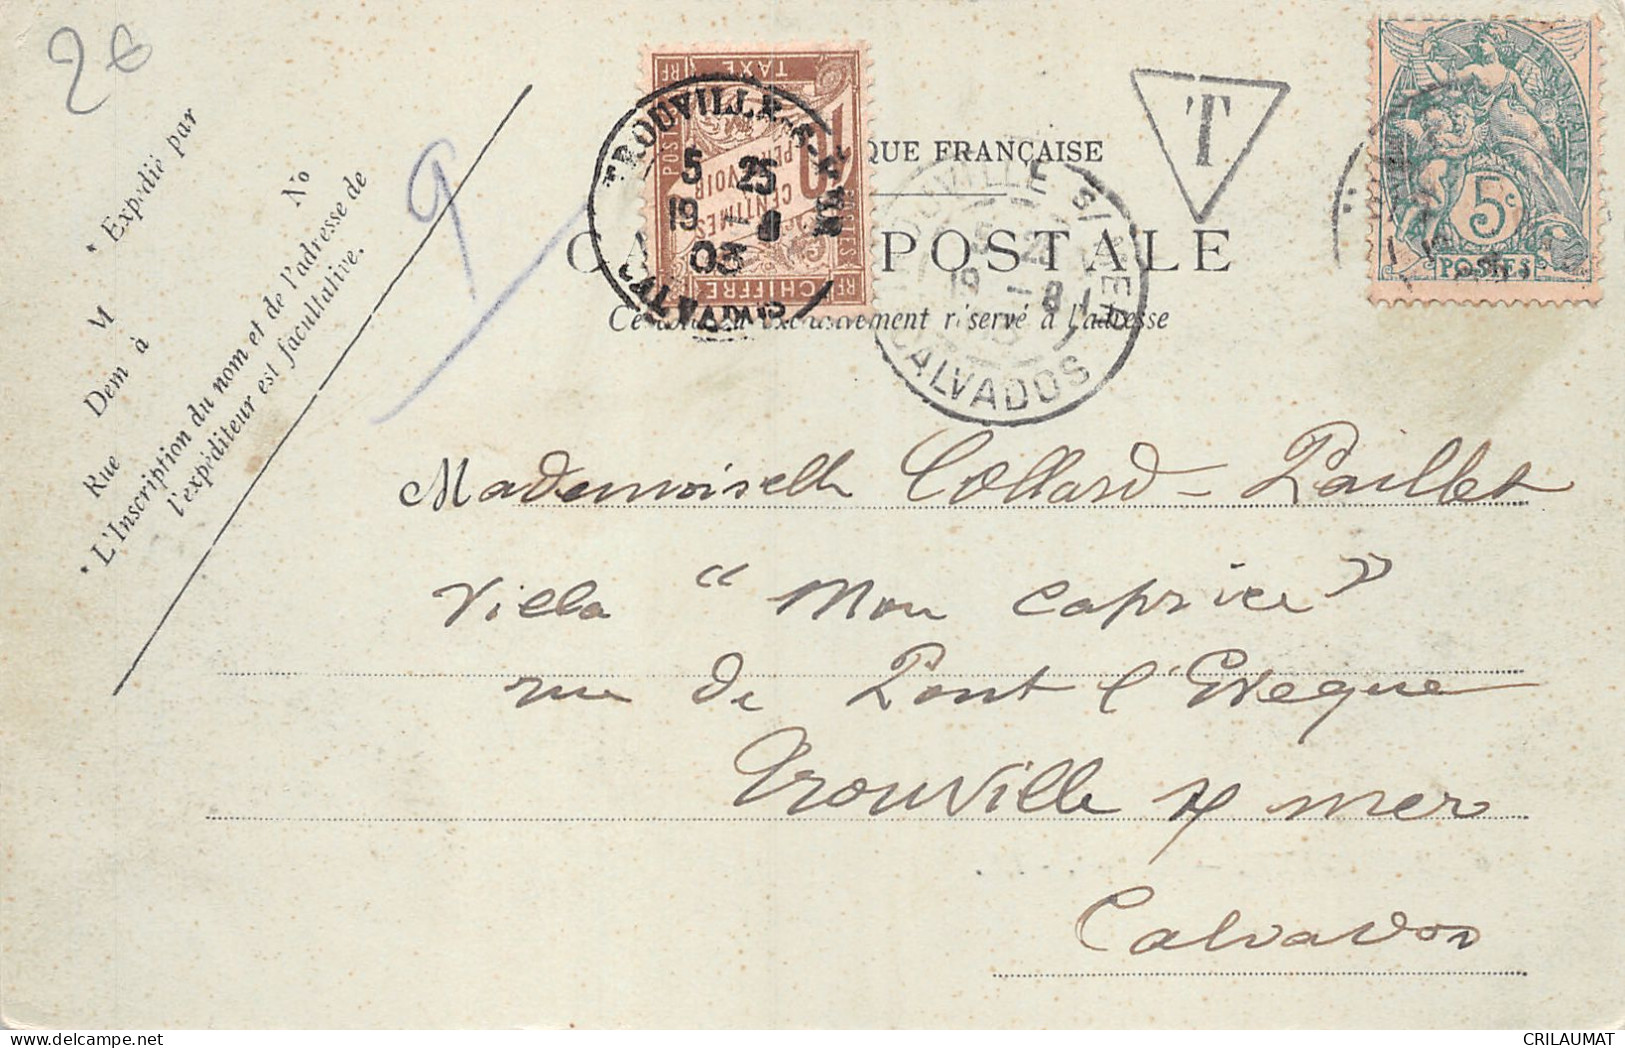 2€
* Expédié par
M
Dem à
Rue
No
* L'Inscription du nom et de l'adresse de
l'expéditeur est facultative.
9
TAXE
RF
POSTES
10
CENTIMES
À PERCEVOIR
CHIFFRE
RF
TROUVILLE-S-MER
5 25
19 -8
03
CALVADOS
QUE FRANÇAISE
POSTALE
exclusivement réservé à l'adresse
T
TROUVILLE S/ MER
19 -8
CALVADOS
RÉPUBLIQUE FRANÇAISE
5c
POSTES
Mademoiselle Collard-Paillet
Villa "Mon Caprice"
rue de Pont l'Evêque
Trouville s/ mer
Calvados
CRILAUMAT